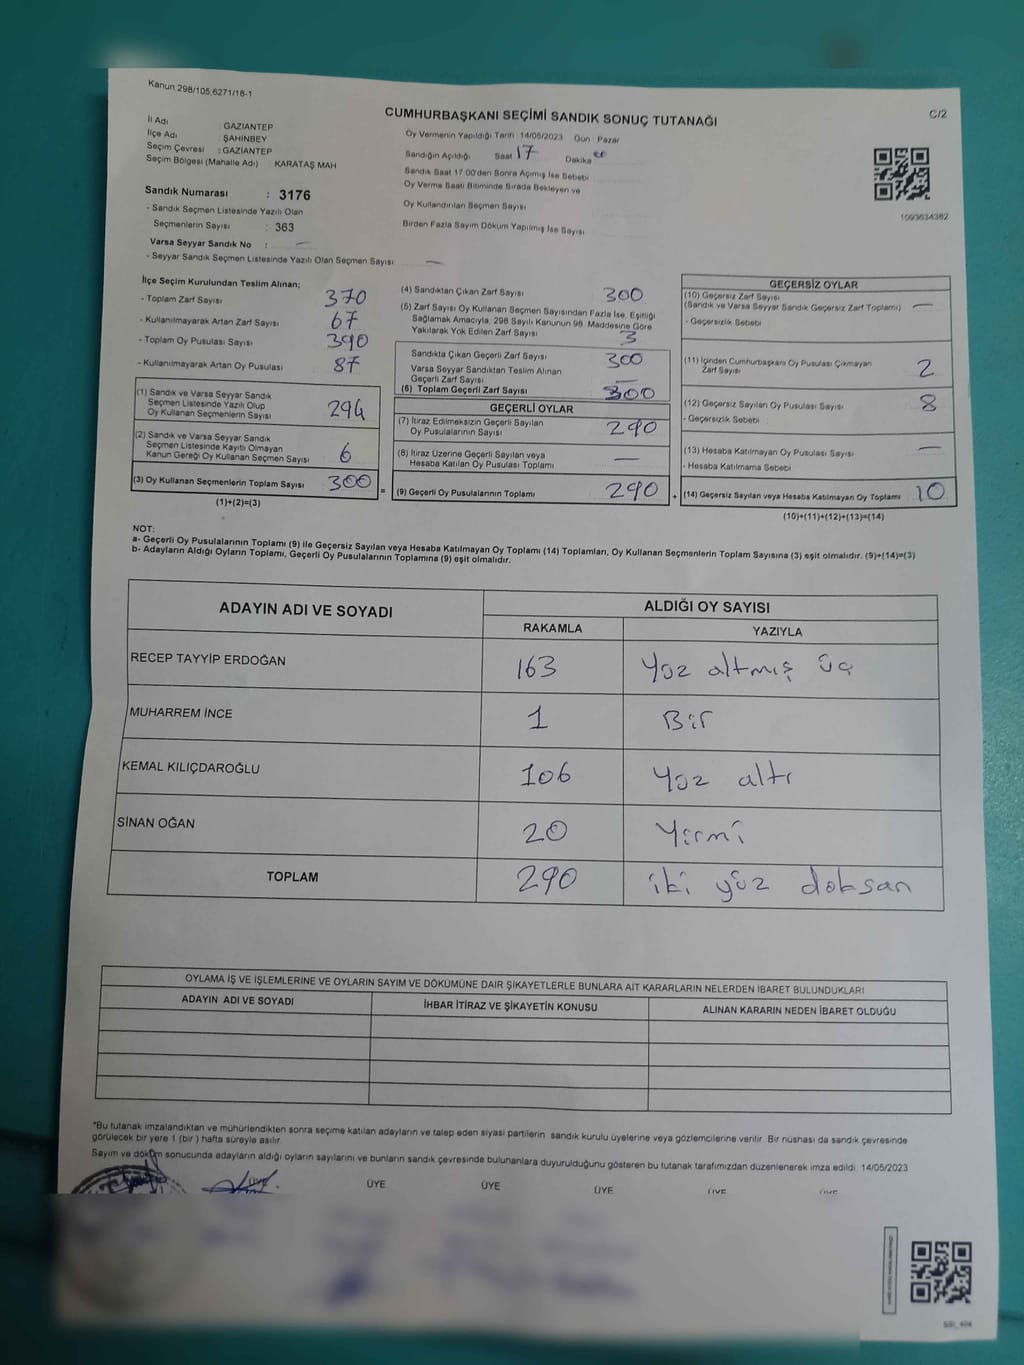 Kanun:298/105,6271/18-1
C/2
CUMHURBAŞKANI SEÇİMİ SANDIK SONUÇ TUTANAĞI
İl Adı : GAZİANTEP
İlçe Adı : ŞAHİNBEY
Seçim Çevresi : GAZİANTEP
Seçim Bölgesi (Mahalle Adı) : KARATAŞ MAH
Sandık Numarası : 3176
- Sandık Seçmen Listesinde Yazılı Olan
Seçmenlerin Sayısı : 363
Varsa Seyyar Sandık No : —
- Seyyar Sandık Seçmen Listesinde Yazılı Olan Seçmen Sayısı —
Oy Vermenin Yapıldığı Tarih : 14/05/2023 Gün Pazar
Sandığın Açıldığı Saat 17 Dakika
Sandık Saat 17.00'den Sonra Açılmış İse Sebebi
Oy Verme Saati Bitiminde Sırada Bekleyen ve
Oy Kullandırılan Seçmen Sayısı
Birden Fazla Sayım Döküm Yapılmış İse Sayısı
1093634382
İlçe Seçim Kurulundan Teslim Alınan;
- Toplam Zarf Sayısı 370
- Kullanılmayarak Artan Zarf Sayısı 67
- Toplam Oy Pusulası Sayısı 390
- Kullanılmayarak Artan Oy Pusulası 87
(1) Sandık ve Varsa Seyyar Sandık
Seçmen Listesinde Yazılı Olup
Oy Kullanan Seçmenlerin Sayısı 294
(2) Sandık ve Varsa Seyyar Sandık
Seçmen Listesinde Kayıtlı Olmayan
Kanun Gereği Oy Kullanan Seçmen Sayısı 6
(3) Oy Kullanan Seçmenlerin Toplam Sayısı 300
(1)+(2)=(3)
=
(4) Sandıktan Çıkan Zarf Sayısı 300
(5) Zarf Sayısı Oy Kullanan Seçmen Sayısından Fazla İse, Eşitliği
Sağlamak Amacıyla, 298 Sayılı Kanunun 98. Maddesine Göre
Yakılarak Yok Edilen Zarf Sayısı 3
Sandıkta Çıkan Geçerli Zarf Sayısı 300
Varsa Seyyar Sandıktan Teslim Alınan
Geçerli Zarf Sayısı —
(6) Toplam Geçerli Zarf Sayısı 300
GEÇERLİ OYLAR
(7) İtiraz Edilmeksizin Geçerli Sayılan
Oy Pusulalarının Sayısı 290
(8) İtiraz Üzerine Geçerli Sayılan veya
Hesaba Katılan Oy Pusulası Toplamı —
(9) Geçerli Oy Pusulalarının Toplamı 290
+
GEÇERSİZ OYLAR
(10) Geçersiz Zarf Sayısı
(Sandık ve Varsa Seyyar Sandık Geçersiz Zarf Toplamı) —
- Geçersizlik Sebebi
(11) İçinden Cumhurbaşkanı Oy Pusulası Çıkmayan
Zarf Sayısı 2
(12) Geçersiz Sayılan Oy Pusulası Sayısı 8
- Geçersizlik Sebebi
(13) Hesaba Katılmayan Oy Pusulası Sayısı —
- Hesaba Katılmama Sebebi
(14) Geçersiz Sayılan veya Hesaba Katılmayan Oy Toplamı 10
(10)+(11)+(12)+(13)=(14)
NOT:
a- Geçerli Oy Pusulalarının Toplamı (9) ile Geçersiz Sayılan veya Hesaba Katılmayan Oy Toplamı (14) Toplamları, Oy Kullanan Seçmenlerin Toplam Sayısına (3) eşit olmalıdır. (9)+(14)=(3)
b- Adayların Aldığı Oyların Toplamı, Geçerli Oy Pusulalarının Toplamına (9) eşit olmalıdır.
ADAYIN ADI VE SOYADI ALDIĞI OY SAYISI
RAKAMLA YAZIYLA
RECEP TAYYİP ERDOĞAN 163 Yüz altmış üç
MUHARREM İNCE 1 Bir
KEMAL KILIÇDAROĞLU 106 Yüz altı
SİNAN OĞAN 20 Yirmi
TOPLAM 290 iki yüz doksan
OYLAMA İŞ VE İŞLEMLERİNE VE OYLARIN SAYIM VE DÖKÜMÜNE DAİR ŞİKAYETLERLE BUNLARA AİT KARARLARIN NELERDEN İBARET BULUNDUKLARI
ADAYIN ADI VE SOYADI İHBAR İTİRAZ VE ŞİKAYETİN KONUSU ALINAN KARARIN NEDEN İBARET OLDUĞU
"Bu tutanak imzalandıktan ve mühürlendikten sonra seçime katılan adayların ve talep eden siyasi partilerin sandık kurulu üyelerine veya gözlemcilerine verilir. Bir nüshası da sandık çevresinde
görülecek bir yere 1 (bir ) hafta süreyle asılır.
Sayım ve döküm sonucunda adayların aldığı oyların sayılarını ve bunların sandık çevresinde bulunanlara duyurulduğunu gösteren bu tutanak tarafımızdan düzenlenerek imza edildi. 14/05/2023
ÜYE ÜYE ÜYE ÜYE ÜYE ÜYE